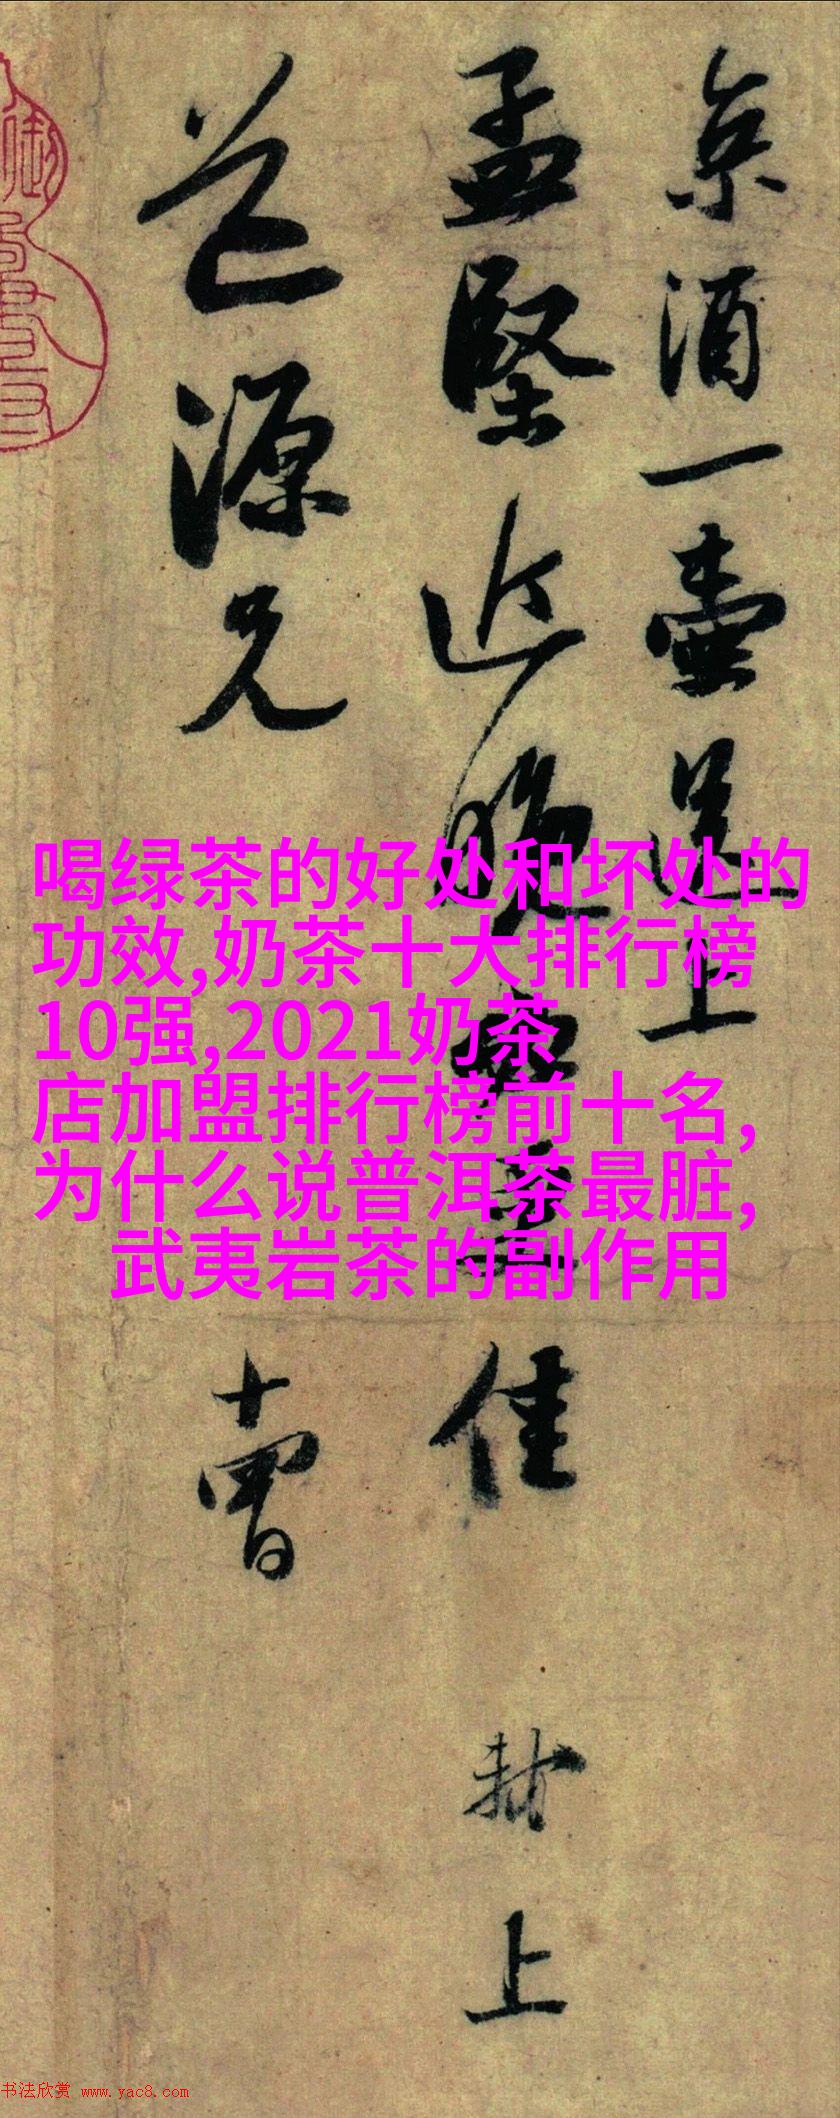 京酒一壶送上
孟坚近晚必更佳
封上
芒源兄
十曹
喝绿茶的好处和坏处的
功效,奶茶十大排行榜
10强,2021奶茶
店加盟排行榜前十名,
为什么说普洱茶最脏,
武夷岩茶的副作用
书法欣赏 www.yac8.com